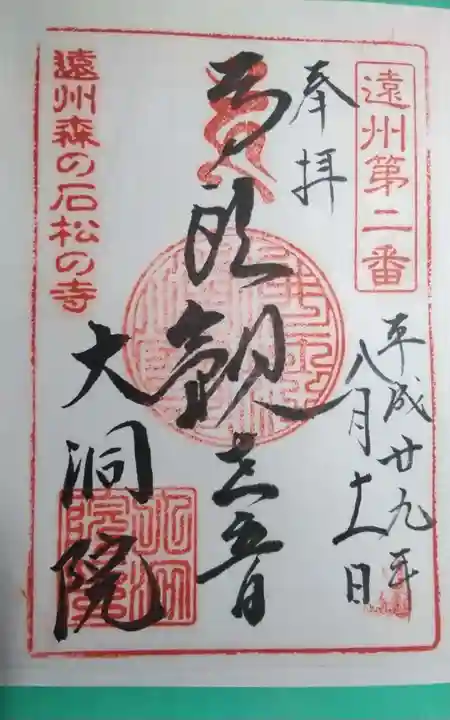 遠州第二番
奉拝
平成廿九年
八月十八日
馬頭観世音
大洞院
遠州森の石松の寺